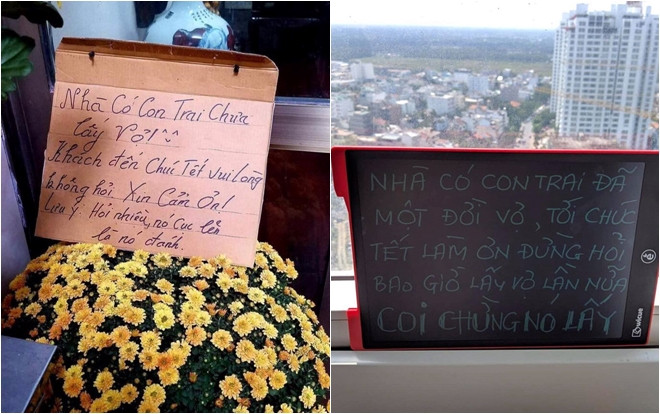 Nhà Có Con Trai Chưa
lấy Vợ!
Khách đến Chúc Tết vui lòng
không hỏi. Xin Cản Ơn!
Lưu ý. Hỏi nhiều, nó cục lên
là nó đánh.
NHÀ CÓ CON TRAI ĐÃ
MỘT ĐỜI VỢ TỚI CHÚC
TẾT LÀM ƠN ĐỪNG HỎI
BAO GIỜ LẤY VỢ LẦN NỮA
COI CHỪNG NÓ LẤY